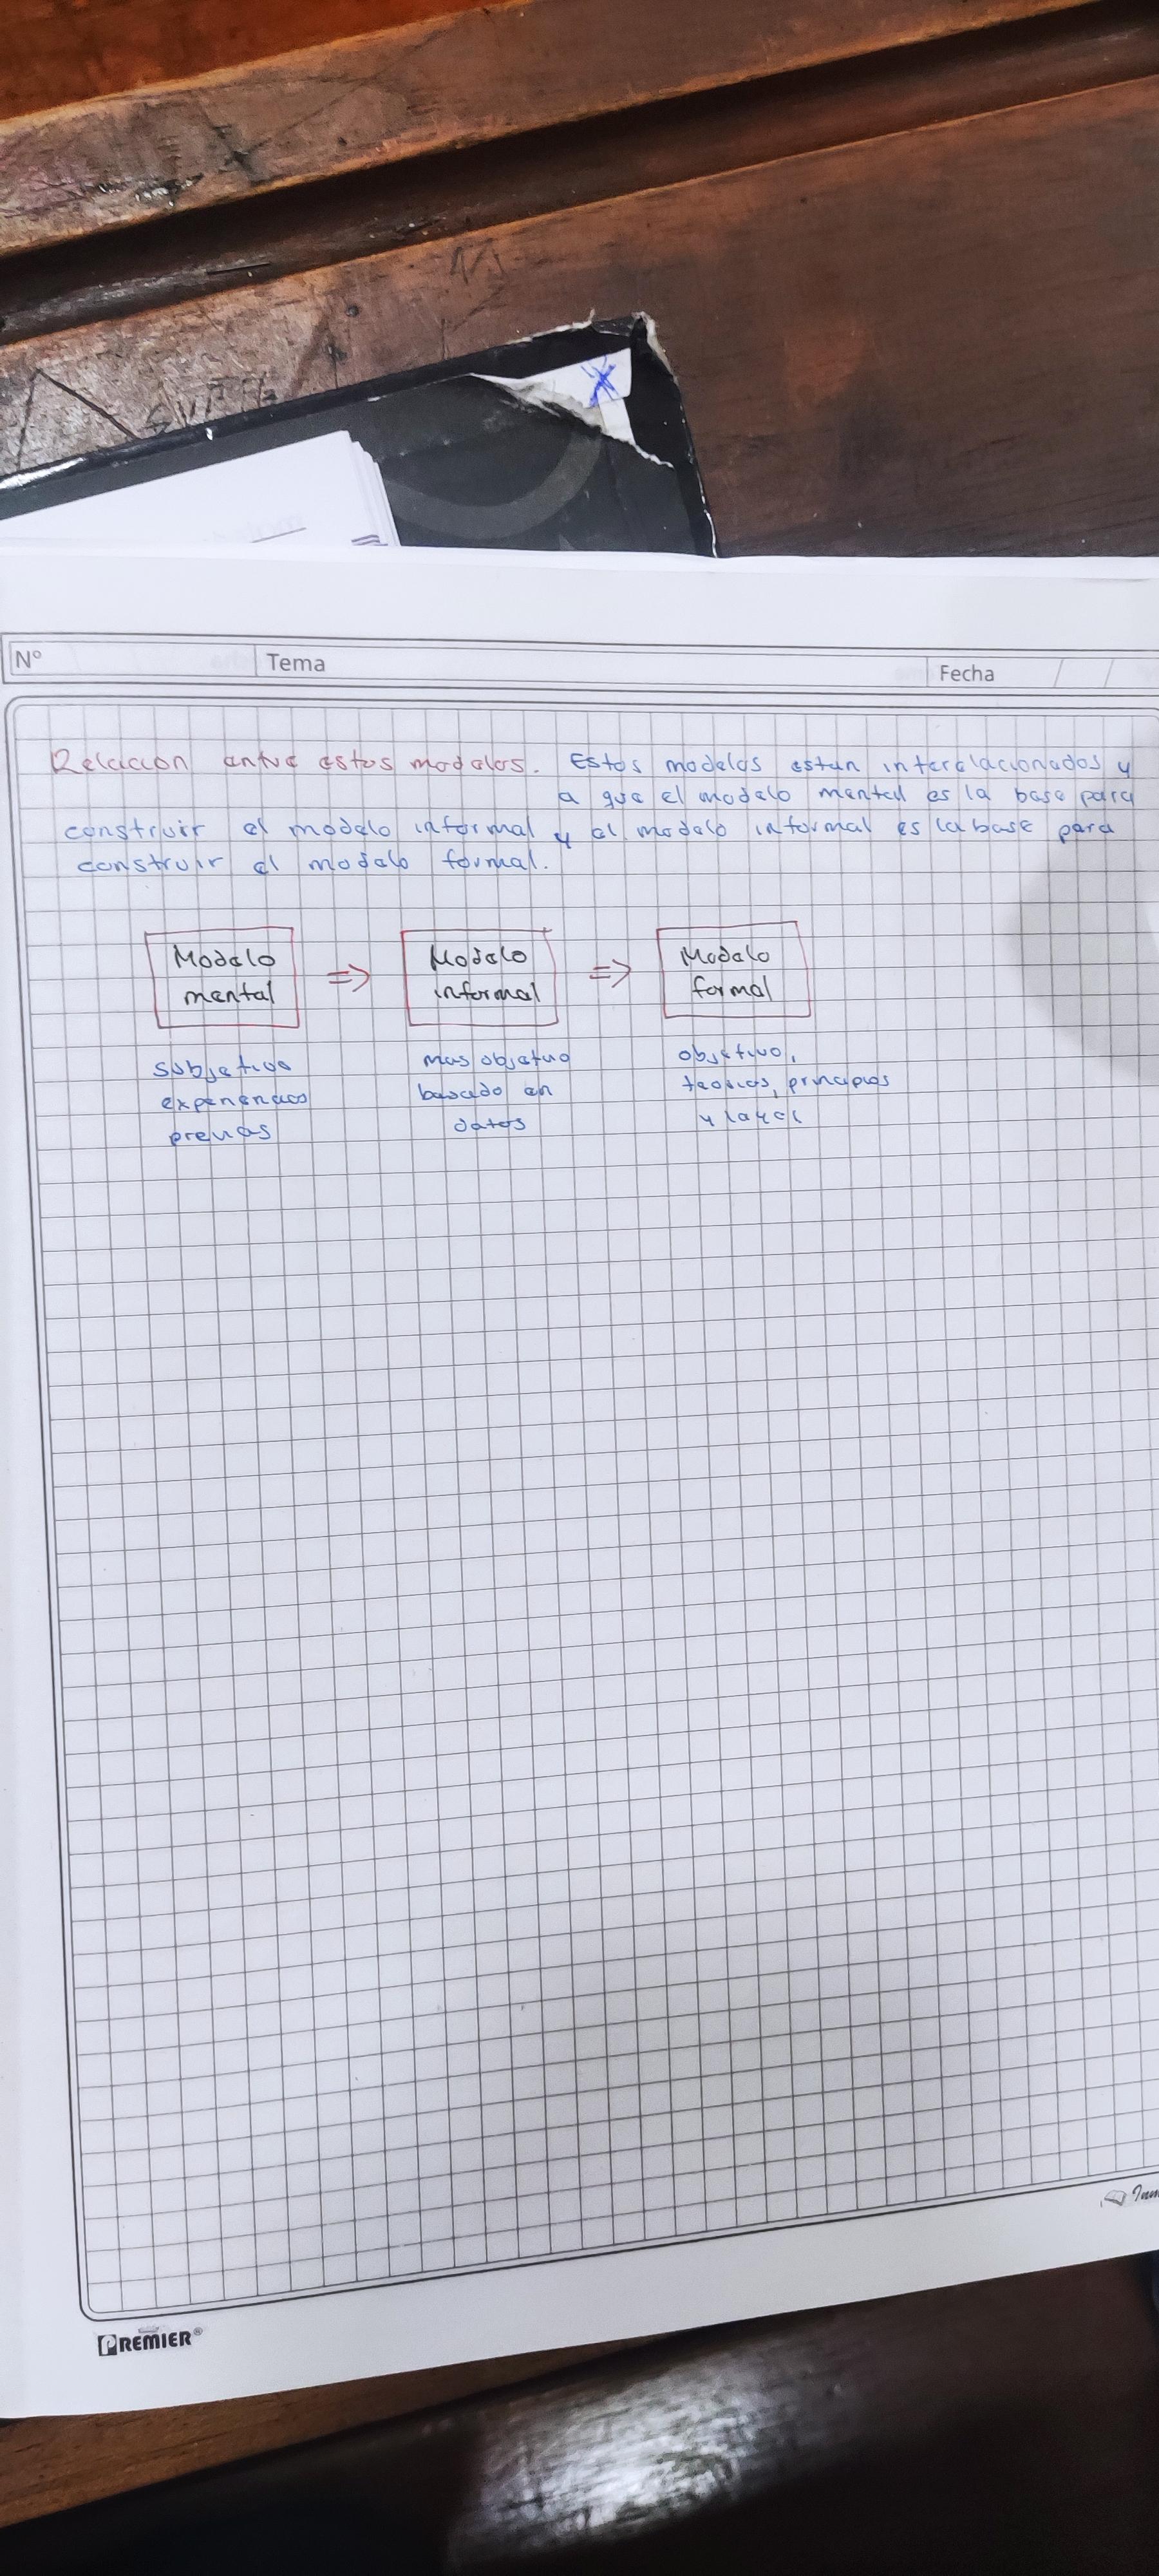 Nº Tema Fecha / /
Relacion entre estos modelos. Estos modelos estan interelacionados y
a que el modelo mental es la base para
construir el modelo informal y el modelo informal es la base para
construir el modelo formal.
Modelo mental ⇒ Modelo informal ⇒ Modelo formal
subjetivo
experiencias
previas
mas objetivo
basado en
datos
objetivo,
teoricos, principios
y leyes
PREMIER®